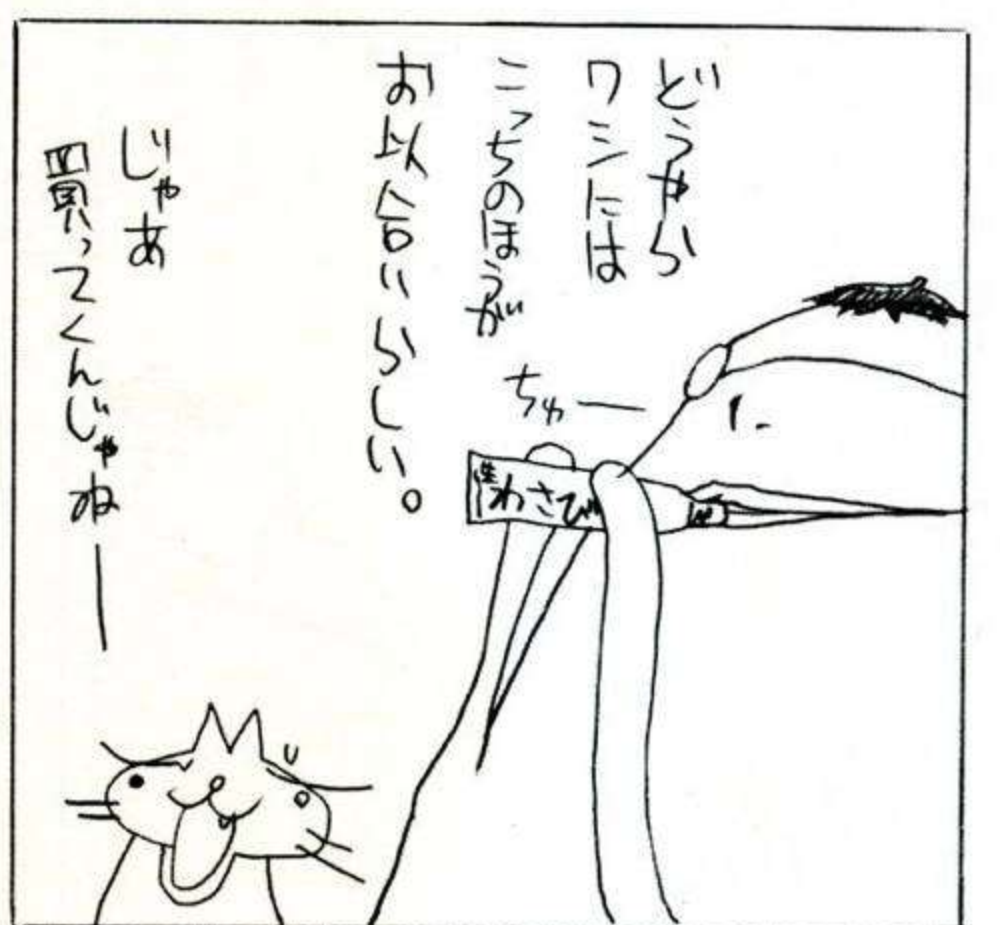 どうやら
ワシには
こっちのほうが
お以合いらしい。
ちゅー
生わさび
じゃあ
買ってくんじゃねー